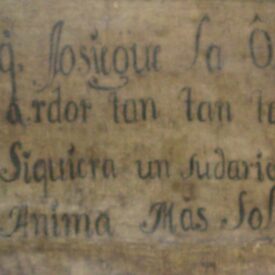 q. Josiegue la Ô
ardor tan tan
Siquiera un sudario
Anima Mas Sol